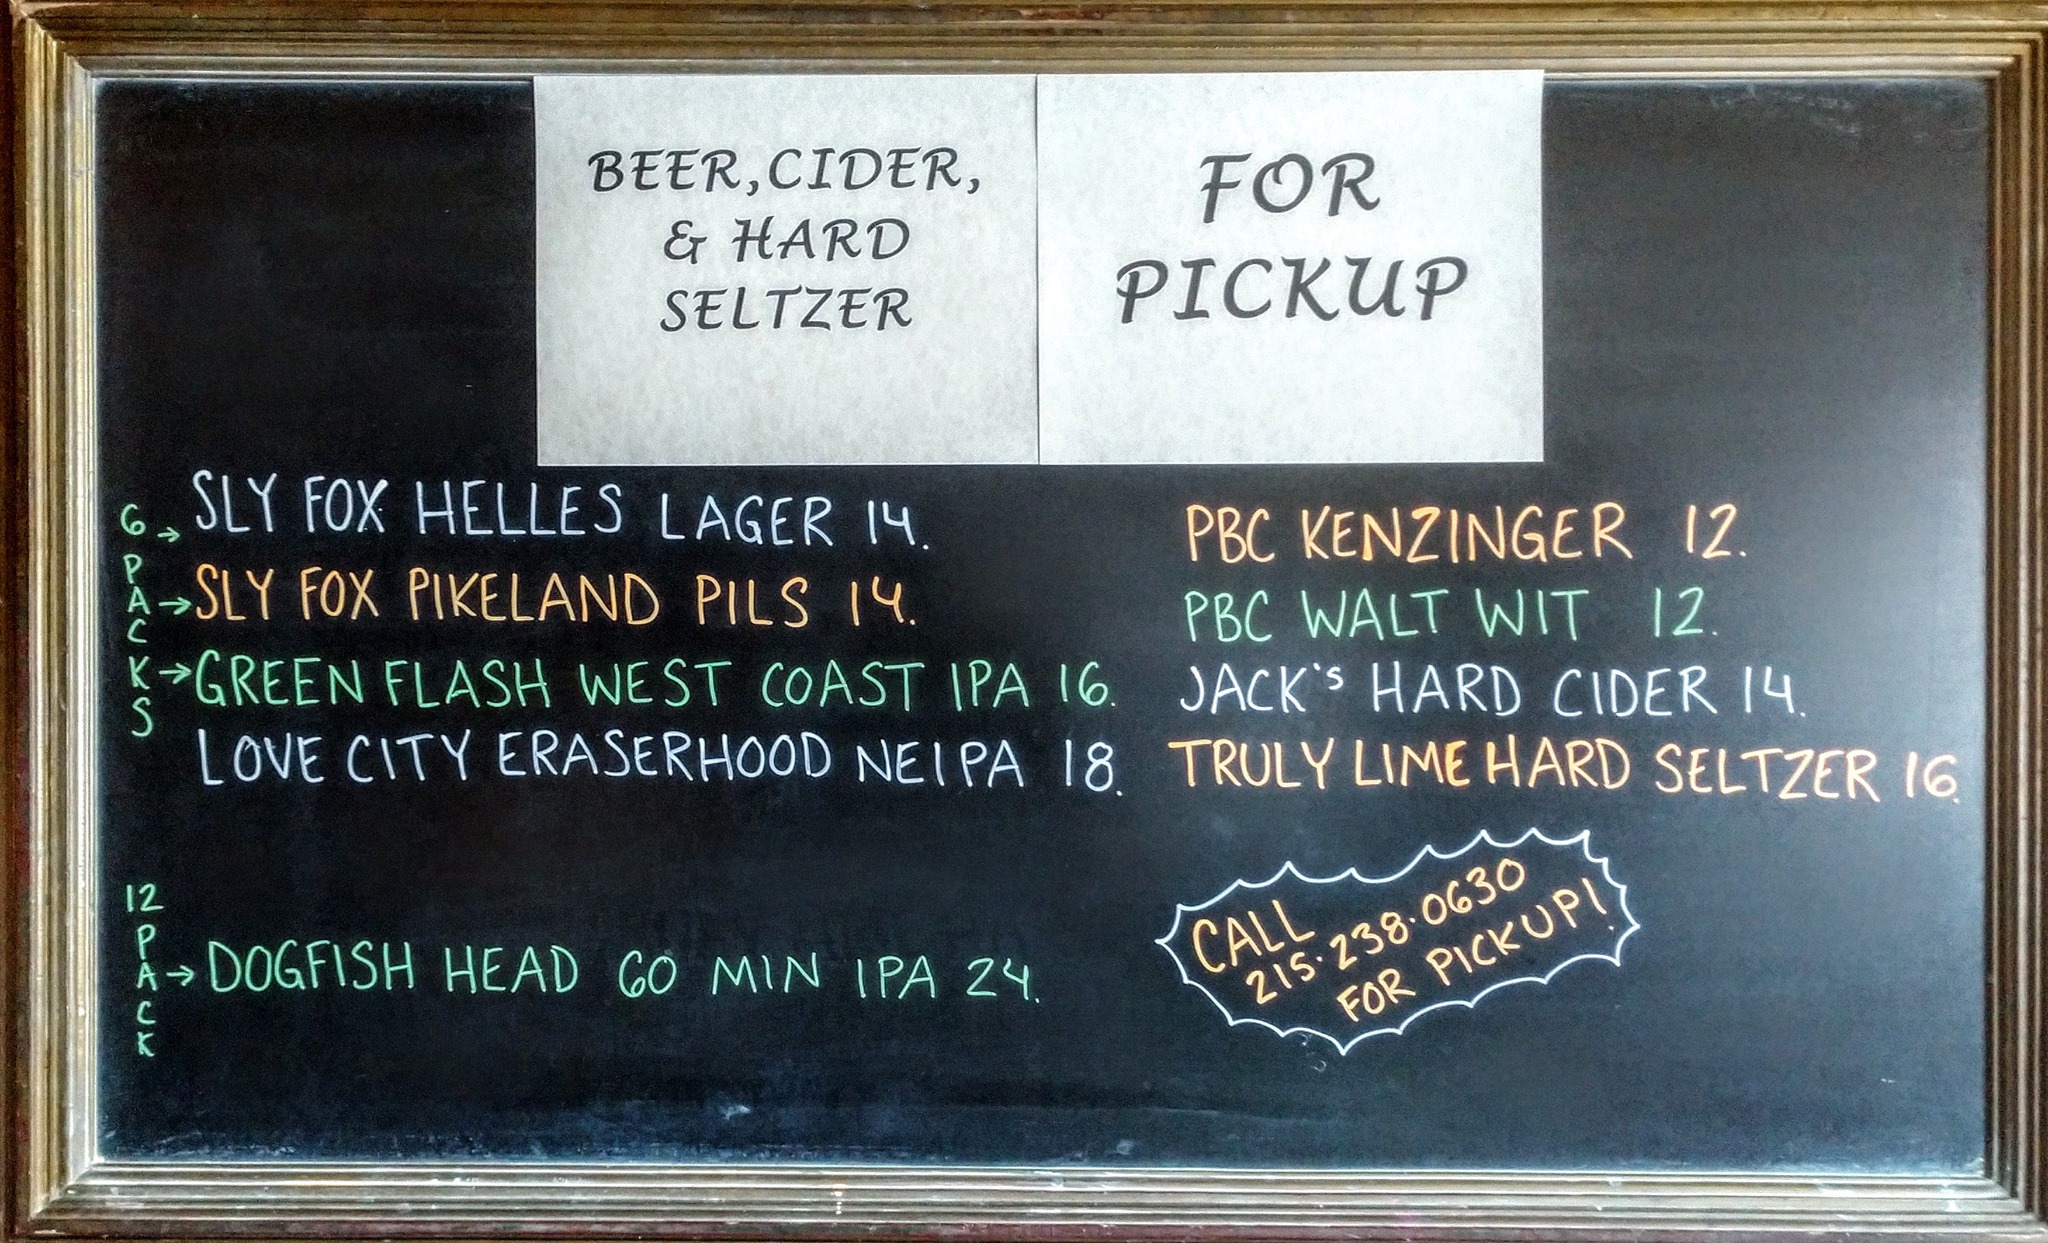 BEER, CIDER,
& HARD
SELTZER
FOR
PICKUP
6 PACKS
SLY FOX HELLES LAGER 14.
SLY FOX PIKELAND PILS 14.
GREEN FLASH WEST COAST IPA 16.
LOVE CITY ERASERHOOD NEIPA 18.
12 PACK
DOGFISH HEAD 60 MIN IPA 24.
PBC KENZINGER 12.
PBC WALT WIT 12.
JACK'S HARD CIDER 14.
TRULY LIME HARD SELTZER 16.
CALL
215.238.0630
FOR PICKUP!